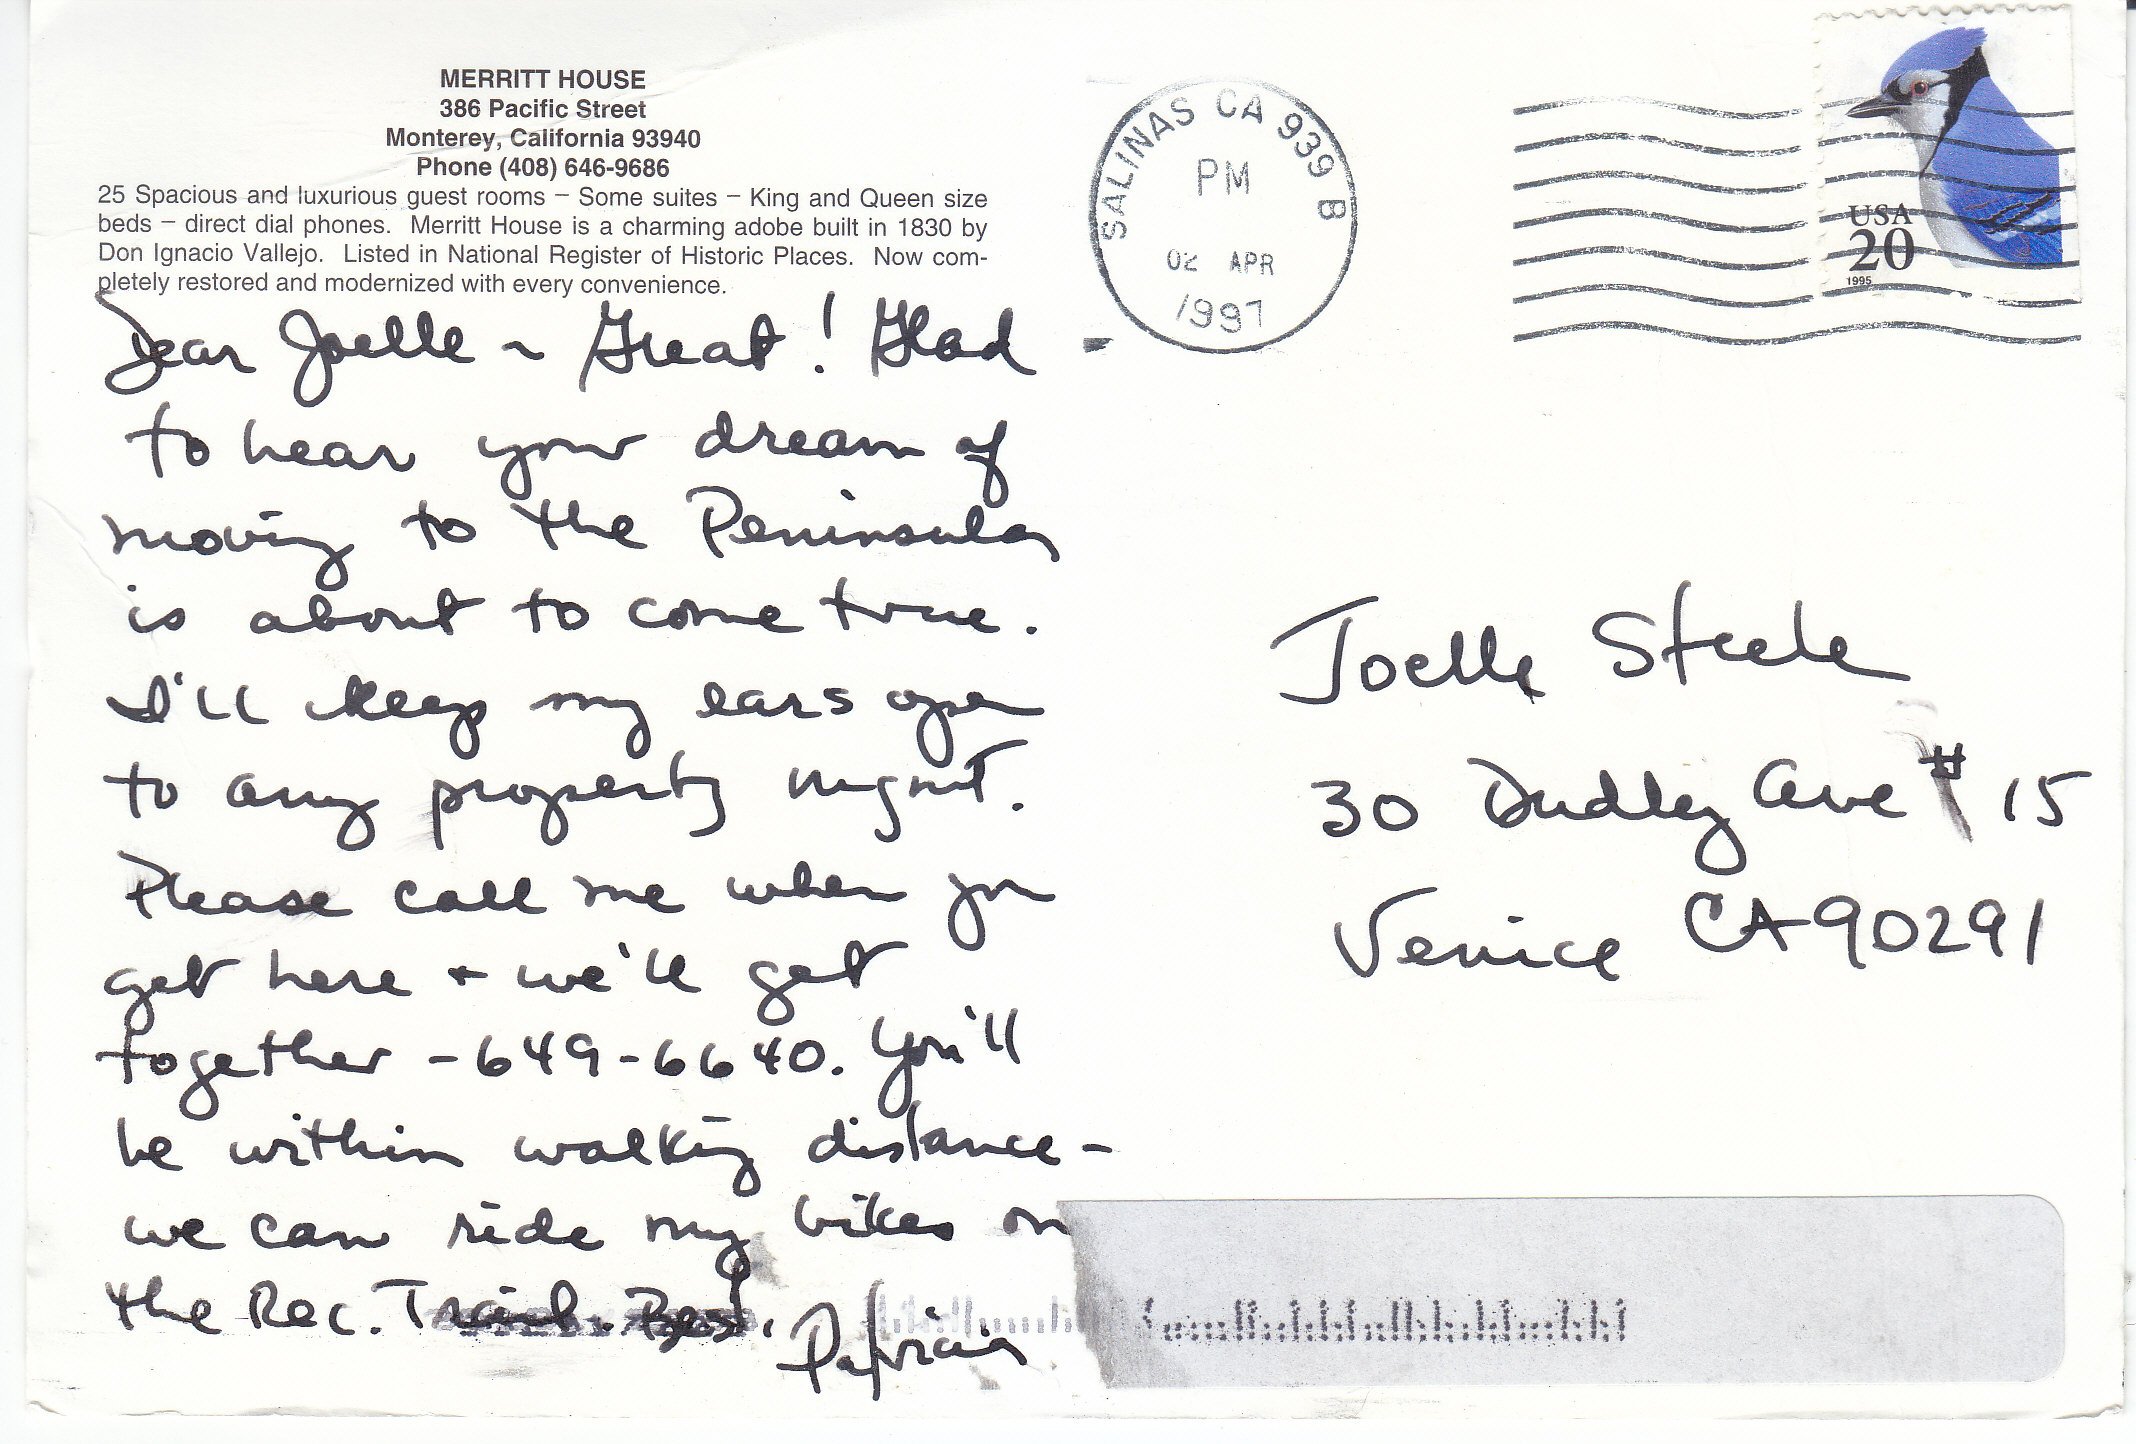 MERRITT HOUSE
386 Pacific Street
Monterey, California 93940
Phone (408) 646-9686
25 Spacious and luxurious guest rooms – Some suites – King and Queen size
beds – direct dial phones. Merritt House is a charming adobe built in 1830 by
Don Ignacio Vallejo. Listed in National Register of Historic Places. Now com-
pletely restored and modernized with every convenience.
Dear Joelle ~ Great! Glad
to hear your dream of
moving to the Peninsula
is about to come true.
I'll keep my ears open
to any property mgmt.
Please call me when you
get here + we'll get
together -649-6640. You'll
be within walking distance -
we can ride my bikes on
the Rec. Trail. Best,
Patricia
SALINAS CA 939 B
PM
02 APR
1997
USA
20
1995
Joelle Steele
30 Dudley Ave # 15
Venice CA 90291